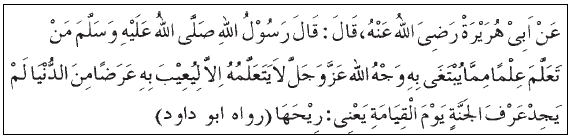 عَنْ اَبِىْ هُرَيْرَةْ رَضِىَ اللهُ عَنْهُ، قَالَ : قَالَ رَسُوْلُ اللهِ صَلَّى اللهُ عَلَيْهِ وَسَلَّمَ مَنْ
تَعَلَّمَ عِلْمًا مِمَّا يُبْتَغَى بِهِ وَجْهُ اللهِ عَزَّوَجَلَّ لاَيَتَعَلَّمُهُ اِلاَّ لِيُعِيْبَ بِهِ عَرَضًامِنَ الدُّنْيَا لَمْ
يَجِدْعَرْفَ الْجَنَّةِ يَوْمَ الْقِيَامَةِ يَعْنِى : رِيْحَهَا (رواه ابو داود)